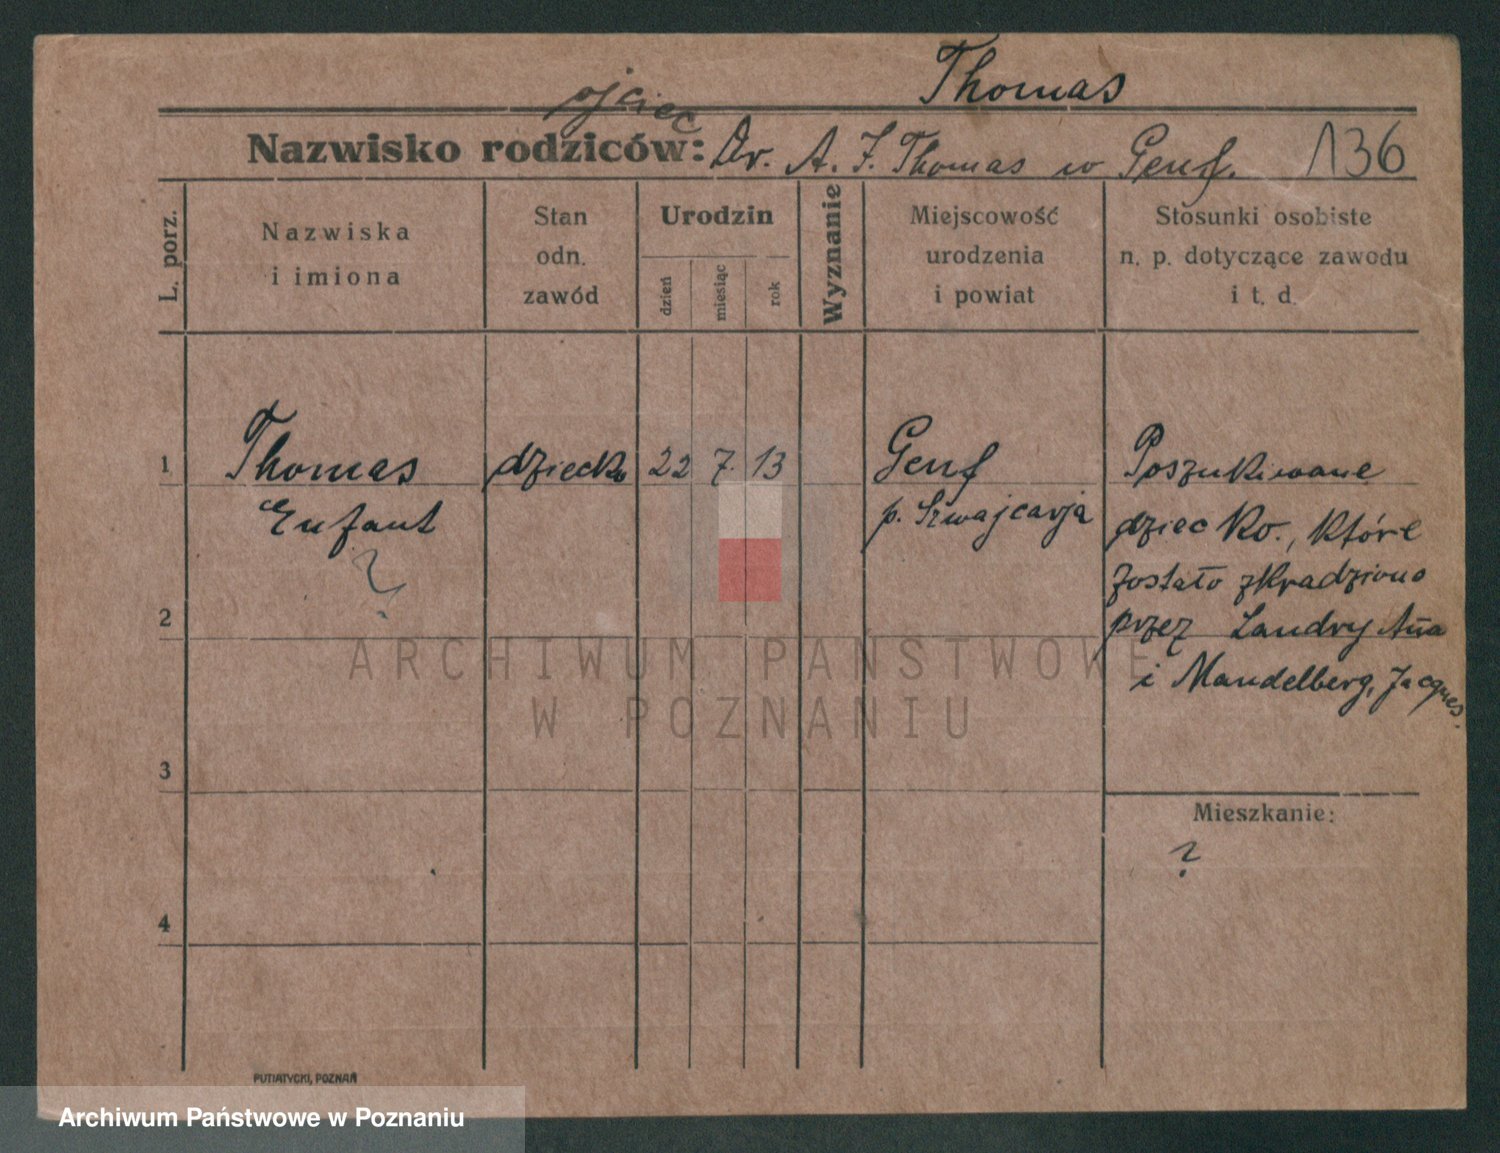 Thomas
ojciec
Nazwisko rodziców: Dr. A. F. Thomas w Genf. 136
L. porz.
Nazwiska
i imiona
Stan
odn.
zawód
Urodzin
dzień
miesiąc
rok
Wyznanie
Miejscowość
urodzenia
i powiat
Stosunki osobiste
n. p. dotyczące zawodu
i t. d.
1 Thomas dziecko 22 7. 13 Genf Poszukiwane
Enfant p. Szwajcarja dziecko., które
? zostało zkradziono
2 przez Landry Ana
i Mandelberg, Jacques.
ARCHIWUM PAŃSTWOWE
W POZNANIU
3
Mieszkanie:
?
4
PUTIATYCKI, POZNAŃ
Archiwum Państwowe w Poznaniu